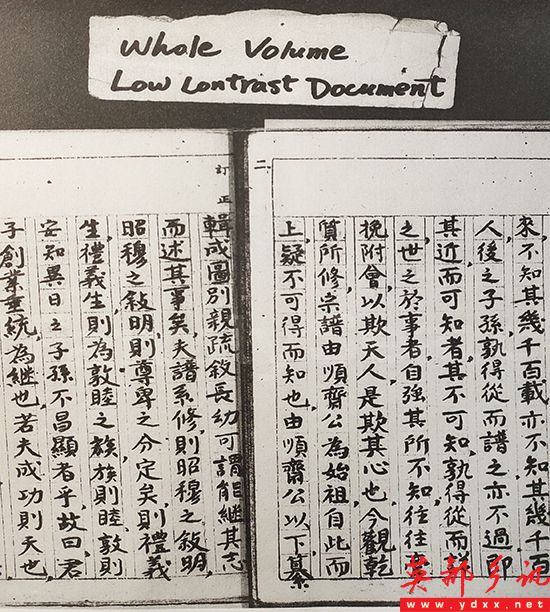 Whole Volume
Low Lontrast Document
二
來不知其幾千百載亦不知其幾千百
人後之子孫孰得從而譜之亦不過即
其近而可知者其不可知孰得從而詳
之世之於事者自強其所不知往往
挽附會以欺天人是欺其心也今觀乾
質所修宗譜由順齋公為始祖自此而
上疑不可得而知也由順齋公以下纂
訂正
輯成圖別親疏敘長幼可謂能繼其志
而述其事矣夫譜系修則昭穆之敘明
昭穆之敘明則尊卑之分定矣則禮義
生禮義生則為敦睦之族族則睦敦則
安知異日之子孫不昌顯者乎故曰君
子創業垂統為繼也若夫成功則天也
英都乡讯
www.ydxx.net